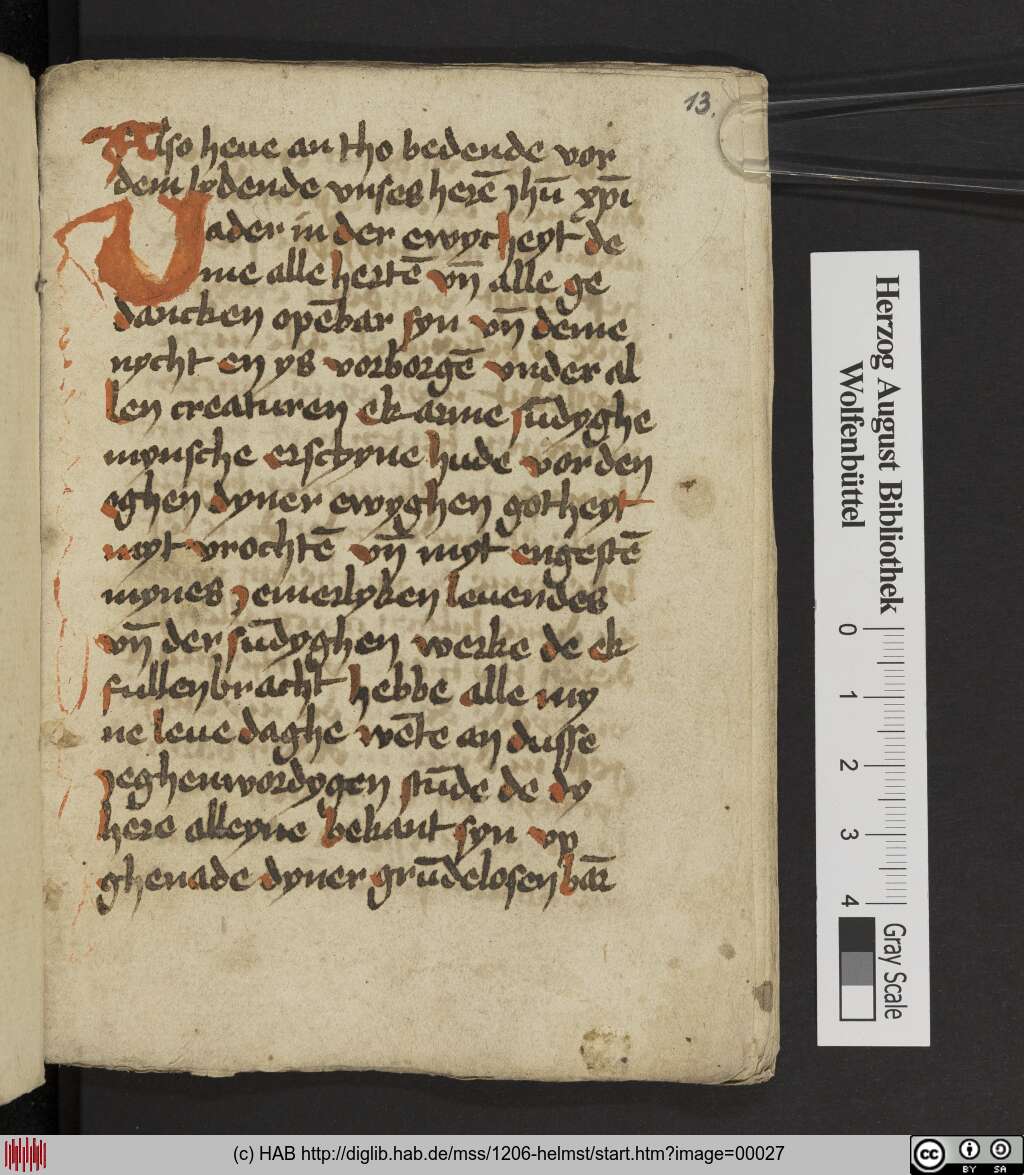 13.
Also heue an tho bedende vor
dem lydende vnses herē ihū xp̄i
Vader in der ewycheyt de
me alle hertē vn̄ alle ge
dancken opēbar syn vn̄ deme
nycht en ys vorborgē vnder al
len creaturen ek arme sūdyghe
mynsche erschyne hude vor den
oghen dyner ewyghen gotheyt
myt vrochtē vn̄ myt engestē
mynes iemerlyken leuendes
vn̄ der sūdyghen werke de ek
fullenbracht hebbe alle my
ne leue daghe wēte an dusse
ieghenwordygen stūde de dy
here alleyne bekant syn vp
ghenade dyner grūdelosen bar̄
Herzog August Bibliothek
Wolfenbüttel
0 1 2 3 4
Gray Scale
(c) HAB http://diglib.hab.de/mss/1206-helmst/start.htm?image=00027
cc BY SA